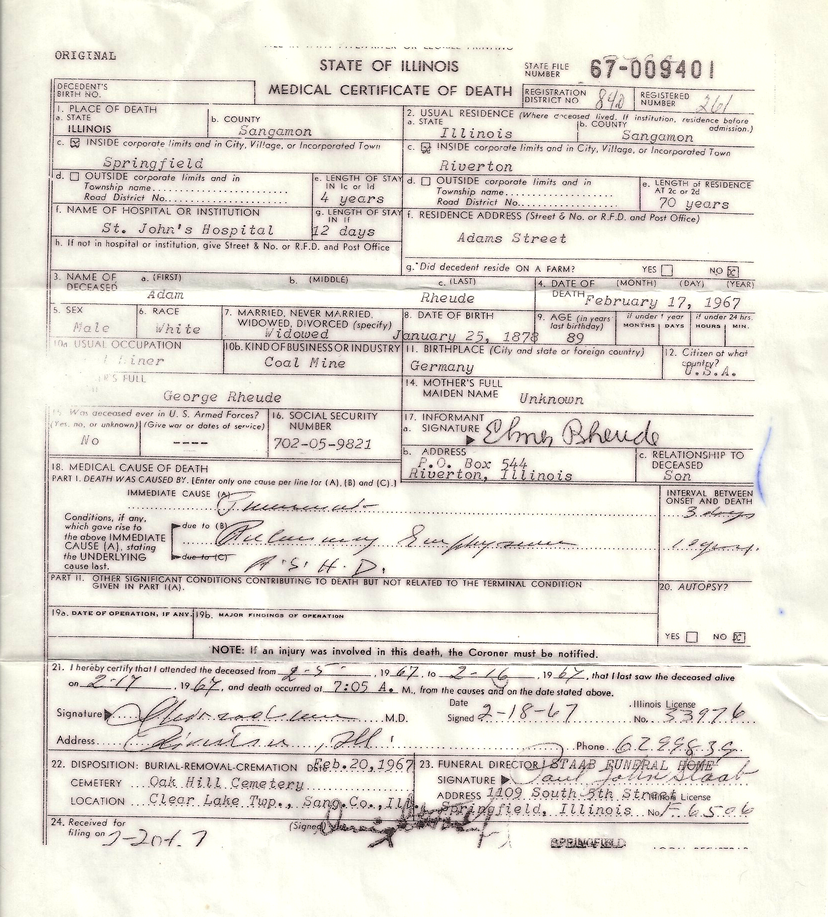 ORIGINAL
STATE OF ILLINOIS
STATE FILE NUMBER 67-009401
MEDICAL CERTIFICATE OF DEATH
DECEDENT'S BIRTH NO.
REGISTRATION DISTRICT NO 840
REGISTERED NUMBER 261
1. PLACE OF DEATH
a. STATE ILLINOIS
b. COUNTY Sangamon
2. USUAL RESIDENCE (Where deceased lived. If institution, residence before admission.)
a. STATE Illinois
b. COUNTY Sangamon
c. ☒ INSIDE corporate limits and in City, Village, or Incorporated Town
Springfield
c. ☒ INSIDE corporate limits and in City, Village, or Incorporated Town
Riverton
d. ☐ OUTSIDE corporate limits and in
Township name
Road District No.
e. LENGTH OF STAY IN 1c or 1d
4 years
d. ☐ OUTSIDE corporate limits and in
Township name
Road District No.
e. LENGTH of RESIDENCE AT 2c or 2d
70 years
f. NAME OF HOSPITAL OR INSTITUTION
St. John's Hospital
g. LENGTH OF STAY IN 1f
12 days
f. RESIDENCE ADDRESS (Street & No. or R.F.D. and Post Office)
Adams Street
h. If not in hospital or institution, give Street & No. or R.F.D. and Post Office
g. Did decedent reside ON A FARM? YES ☐ NO ☒
3. NAME OF DECEASED
a. (FIRST) Adam
b. (MIDDLE)
c. (LAST) Rheude
4. DATE OF DEATH (MONTH) (DAY) (YEAR)
February 17, 1967
5. SEX Male
6. RACE White
7. MARRIED, NEVER MARRIED, WIDOWED, DIVORCED (specify)
Widowed
8. DATE OF BIRTH
January 25, 1878
9. AGE (in years last birthday) 89
if under 1 year MONTHS DAYS
if under 24 hrs. HOURS MIN.
10a. USUAL OCCUPATION
Miner
10b. KIND OF BUSINESS OR INDUSTRY
Coal Mine
11. BIRTHPLACE (City and state or foreign country)
Germany
12. Citizen of what country?
U.S.A.
'S FULL
George Rheude
14. MOTHER'S FULL MAIDEN NAME Unknown
15. Was deceased ever in U. S. Armed Forces?
(Yes, no, or unknown) (Give war or dates of service)
No ----
16. SOCIAL SECURITY NUMBER
702-05-9821
17. INFORMANT
a. SIGNATURE Elmer Rheude
b. ADDRESS
P.O. Box 544
Riverton, Illinois
c. RELATIONSHIP TO DECEASED
Son
18. MEDICAL CAUSE OF DEATH
PART I. DEATH WAS CAUSED BY. [Enter only one cause per line for (A), (B) and (C).]
INTERVAL BETWEEN ONSET AND DEATH
IMMEDIATE CAUSE (A) Pneumonia 3 days
Conditions, if any, which gave rise to the above IMMEDIATE CAUSE (A), stating the UNDERLYING cause last.
due to (B) Pulmonary Emphysema
due to (C) A.S.H.D.
PART II. OTHER SIGNIFICANT CONDITIONS CONTRIBUTING TO DEATH BUT NOT RELATED TO THE TERMINAL CONDITION GIVEN IN PART I(A).
20. AUTOPSY?
YES ☐ NO ☒
19a. DATE OF OPERATION, IF ANY
19b. MAJOR FINDINGS OF OPERATION
NOTE: If an injury was involved in this death, the Coroner must be notified.
21. I hereby certify that I attended the deceased from 2-5-, 1967, to 2-16, 1967, that I last saw the deceased alive
on 2-17, 1967, and death occurred at 7:05 A. M., from the causes and on the date stated above.
Signature M.D.
Date Signed 2-18-67
Illinois License No. 33976
Address Riverton, Ill
Phone 6299839
22. DISPOSITION: BURIAL-REMOVAL-CREMATION
DATE Feb.20,1967
CEMETERY Oak Hill Cemetery
LOCATION Clear Lake Twp., Sang.Co., Ill.
23. FUNERAL DIRECTOR STAAB FUNERAL HOME
SIGNATURE Paul John Staab
ADDRESS 1109 South 5th Street
Springfield, Illinois
Illinois License No. F-6506
24. Received for filing on
(Signed)
SPRINGFIELD